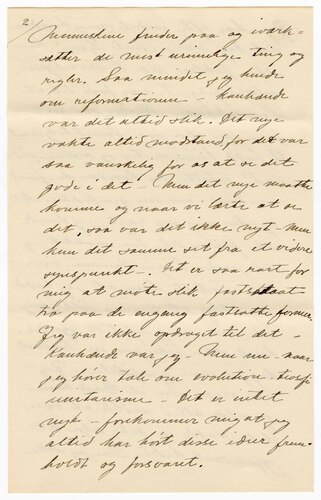 2/
Menneskene finder paa og iværk-
sætter de mest urimelige ting og
regler. Saa mindet jeg hende
om reformationen - Kanhænde
var det altid slik. Det nye
vakte altid modstand, for det var
saa vanskelig for os at se det
gode i det - Men det nye maatte
komme og naar vi lærte at se
det, saa var det ikke nyt - men
kun det samme set fra et videre
synspunkt -. Det er saa rart for
mig at møte slik fastsat
tro paa de engang fastsatte former.
Jeg var ikke opdraget til det -
Kanhænde var jeg - Men nu - naar
jeg hører tale om evolution - teosofi
unitarisme - Det er intet
nyt - forekommer mig at jeg
altid har hørt disse ideer frem-
holdt og forsvaret.